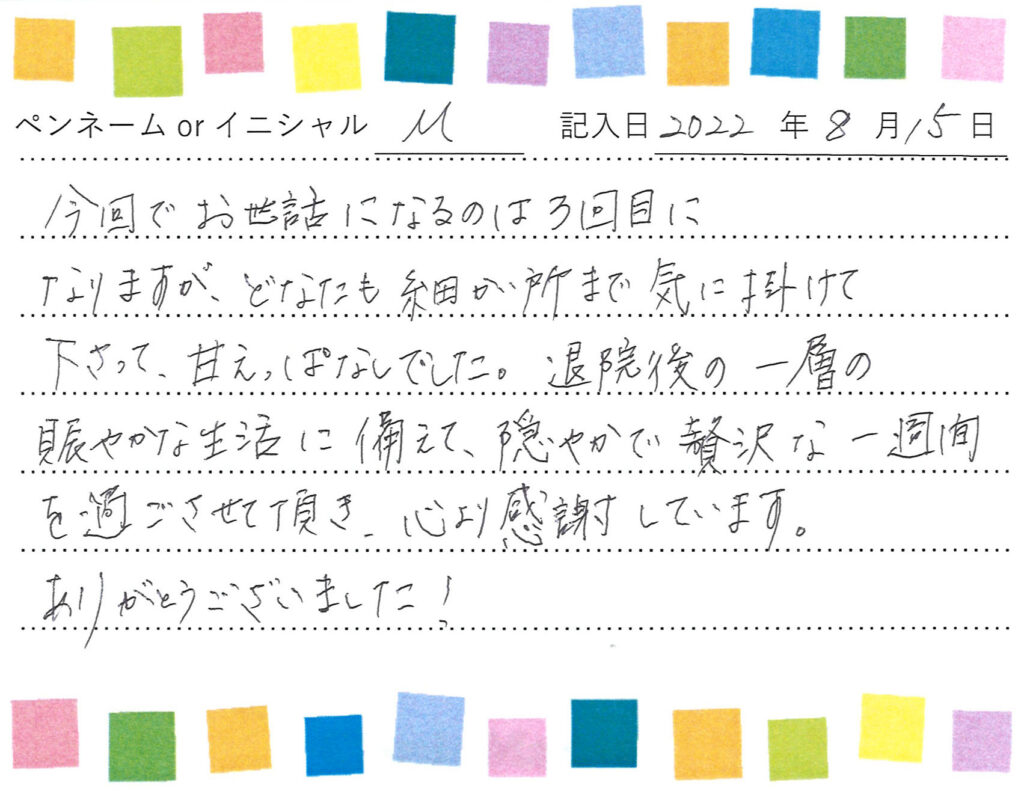 ペンネーム or イニシャル M 記入日 2022 年 8 月 15 日
今回でお世話になるのは3回目に
なりますが、どなたも細かい所まで気に掛けて
下さって、甘えっぱなしでした。退院後の一層の
賑やかな生活に備えて、穏やかで贅沢な一週間
を過ごさせて頂き、心より感謝しています。
ありがとうございました!